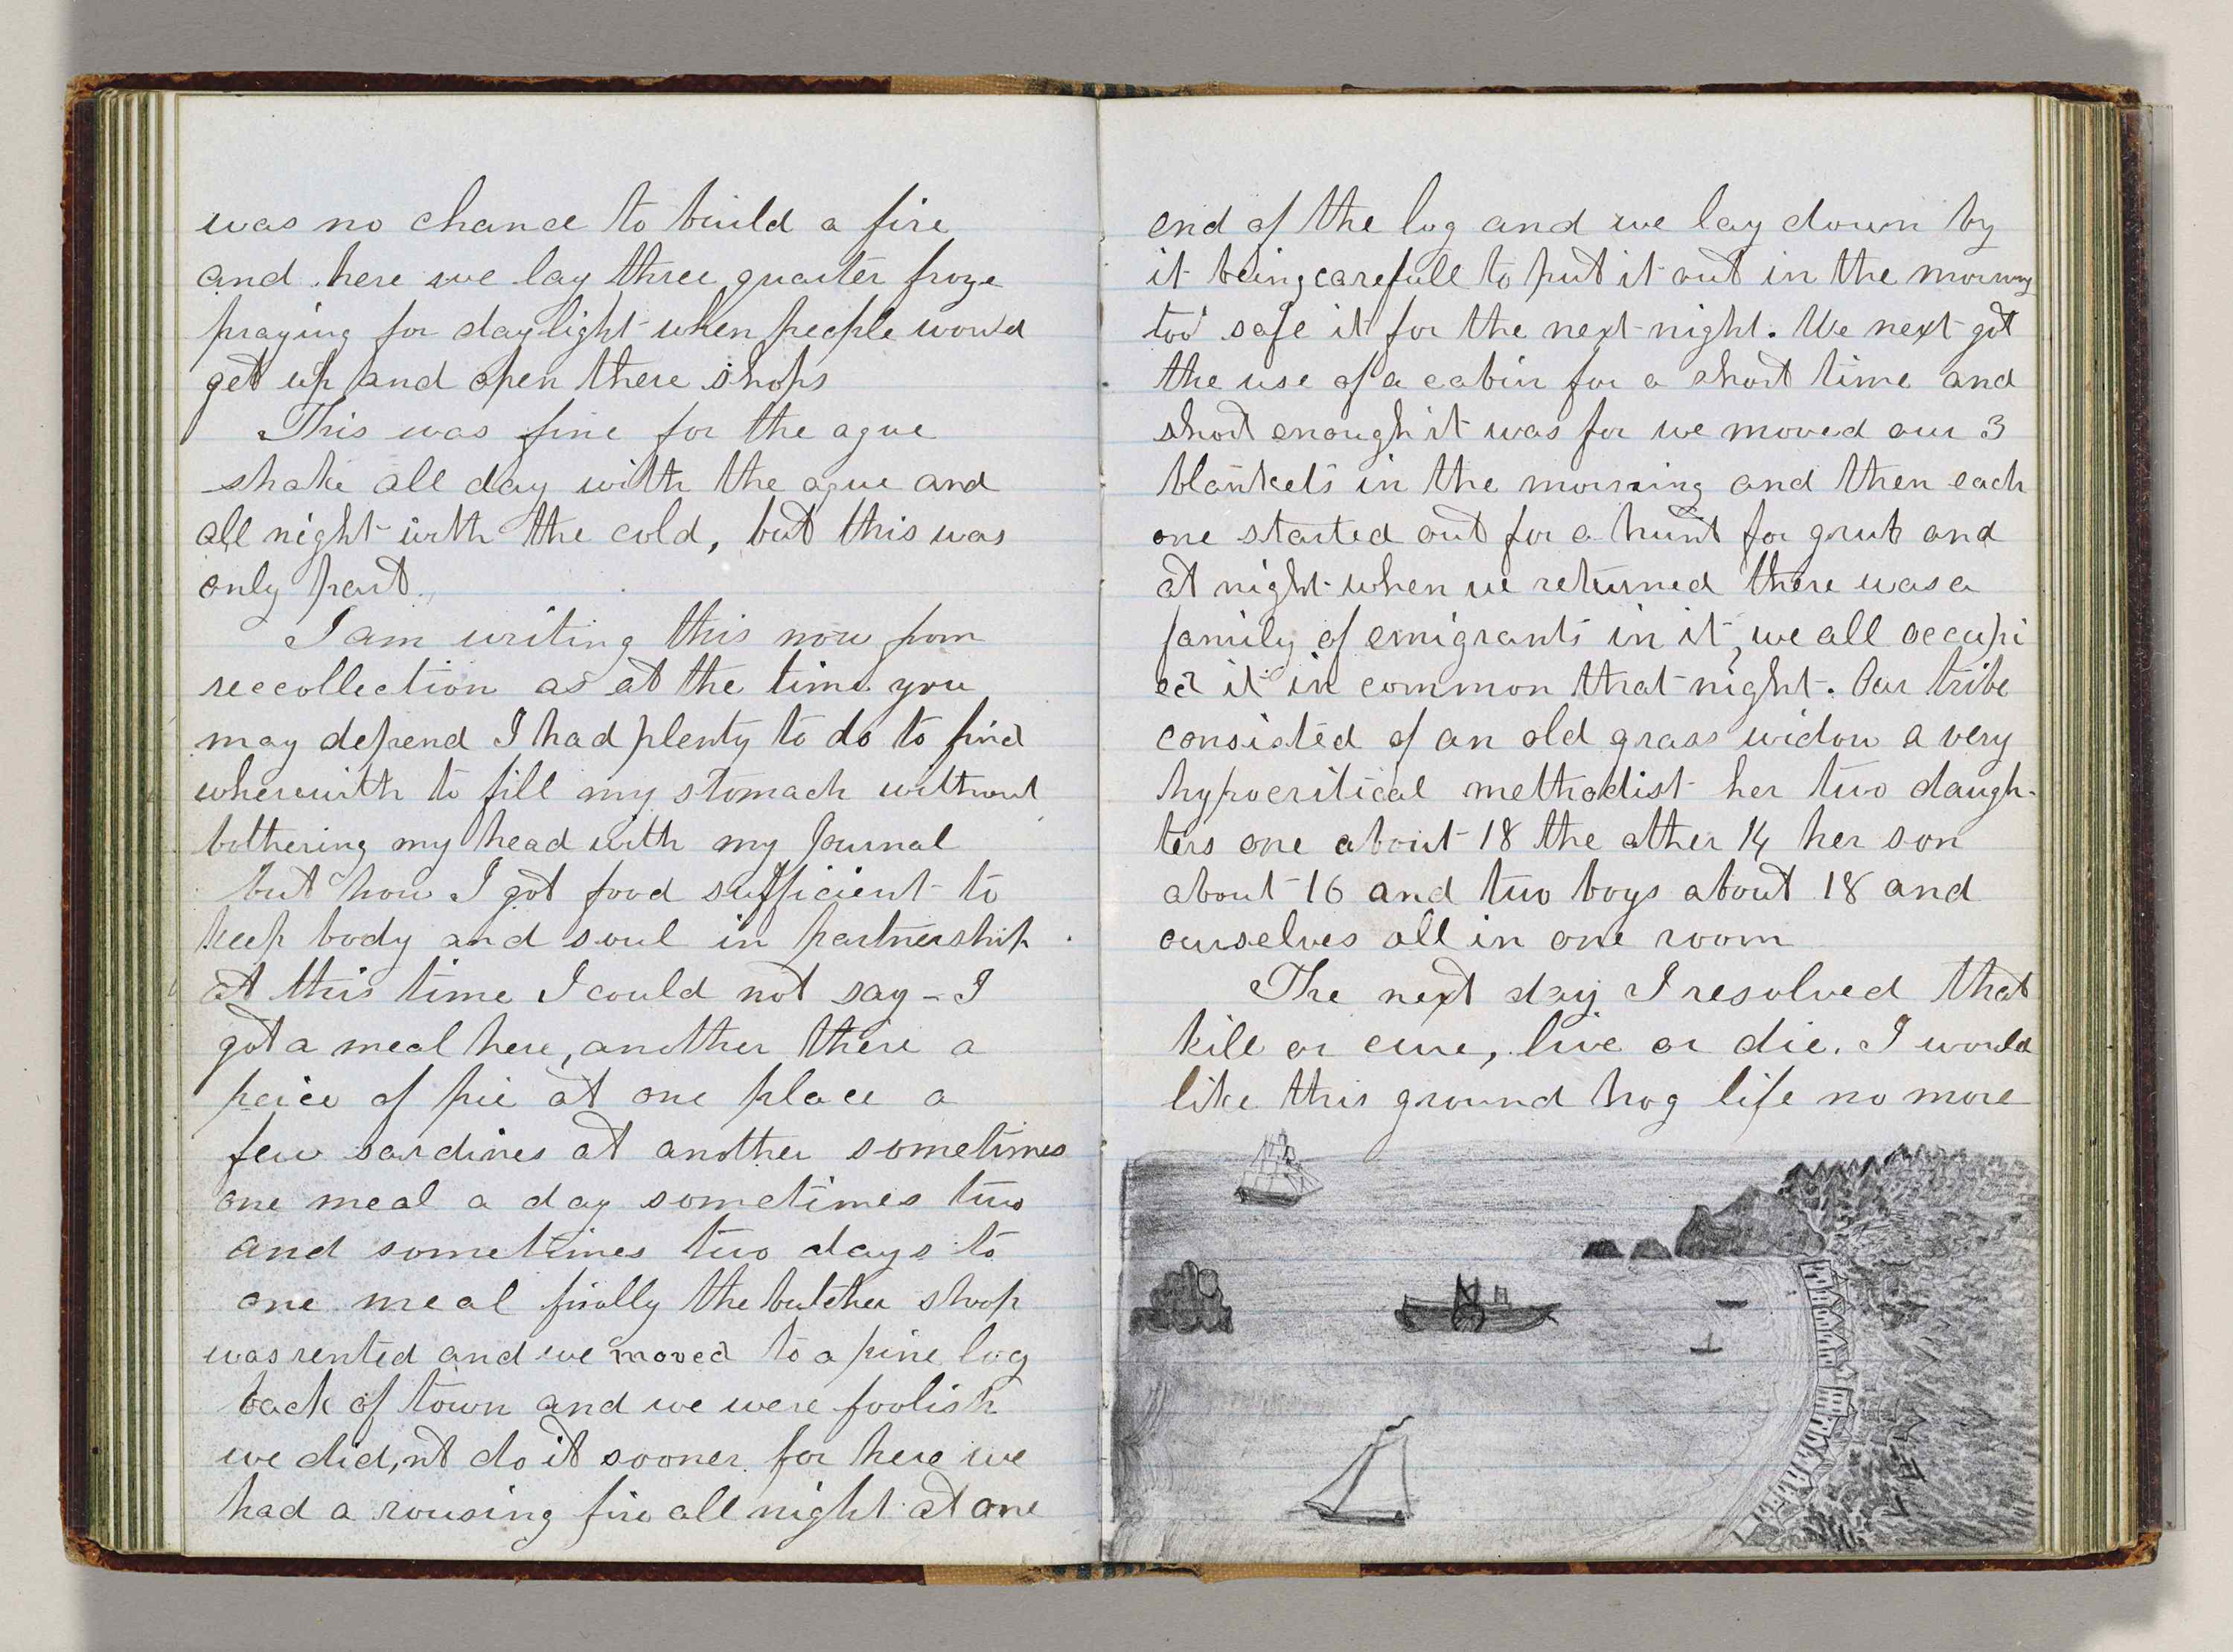 was no chance to build a fire
and here we lay three quarter froze
praying for daylight when people would
get up and open there shops
This was fine for the ague
shake all day with the ague and
all night with the cold, but this was
only part.
I am writing this now from
reccollection as at the time you
may depend I had plenty to do to find
wherewith to fill my stomach without
bothering my head with my Journal
but how I got food sufficient to
keep body and soul in partnership
at this time I could not say - I
got a meal here, another there a
peice of pie at one place a
few sardines at another sometimes
one meal a day sometimes two
and sometimes two days to
one meal finally the butcher shop
was rented and we moved to a pine log
back of town and we were foolish
we did,nt do it sooner for here we
had a rousing fire all night at one
end of the log and we lay down by
it being carefull to put it out in the morning
too safe it for the next night. We next got
the use of a cabin for a short time and
short enough it was for we moved our 3
blankets in the morning and then each
one started out for a hunt for grub and
at night when we returned there was a
family of emigrants in it, we all occupi
ed it in common that night. Our tribe
consisted of an old grass widow a very
hypocritical methodist her two daugh-
ters one about 18 the other 14 her son
about 16 and two boys about 18 and
ourselves all in one room
The next day I resolved that
kill or cure, live or die. I would
like this ground hog life no more